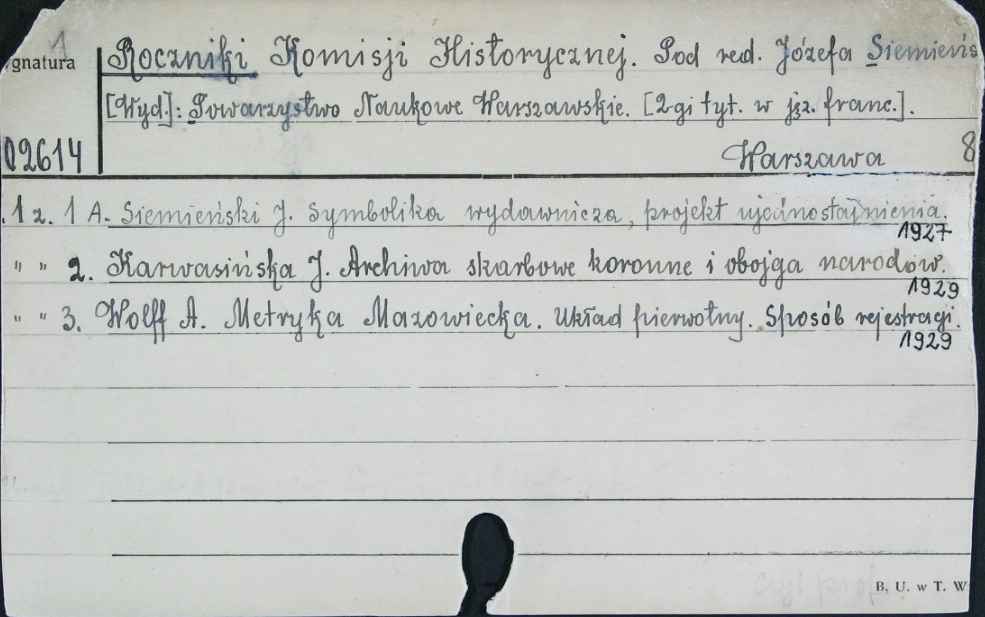 1
gnatura
Roczniki Komisji Historycznej. Pod red. Józefa Siemieńs
[Wyd.]: Towarzystwo Naukowe Warszawskie. [2-gi tyt. w jęz. franc.].
02614 Warszawa 8
.1 z. 1 A. Siemieński J. Symbolika wydawnicza, projekt ujednostajnienia.
1927
" " 2. Karwasińska J. Archiwa skarbowe koronne i obojga narodów.
1929
" " 3. Wolff A. Metryka Mazowiecka. Układ pierwotny. Sposób rejestracji.
1929
B. U. w T. W